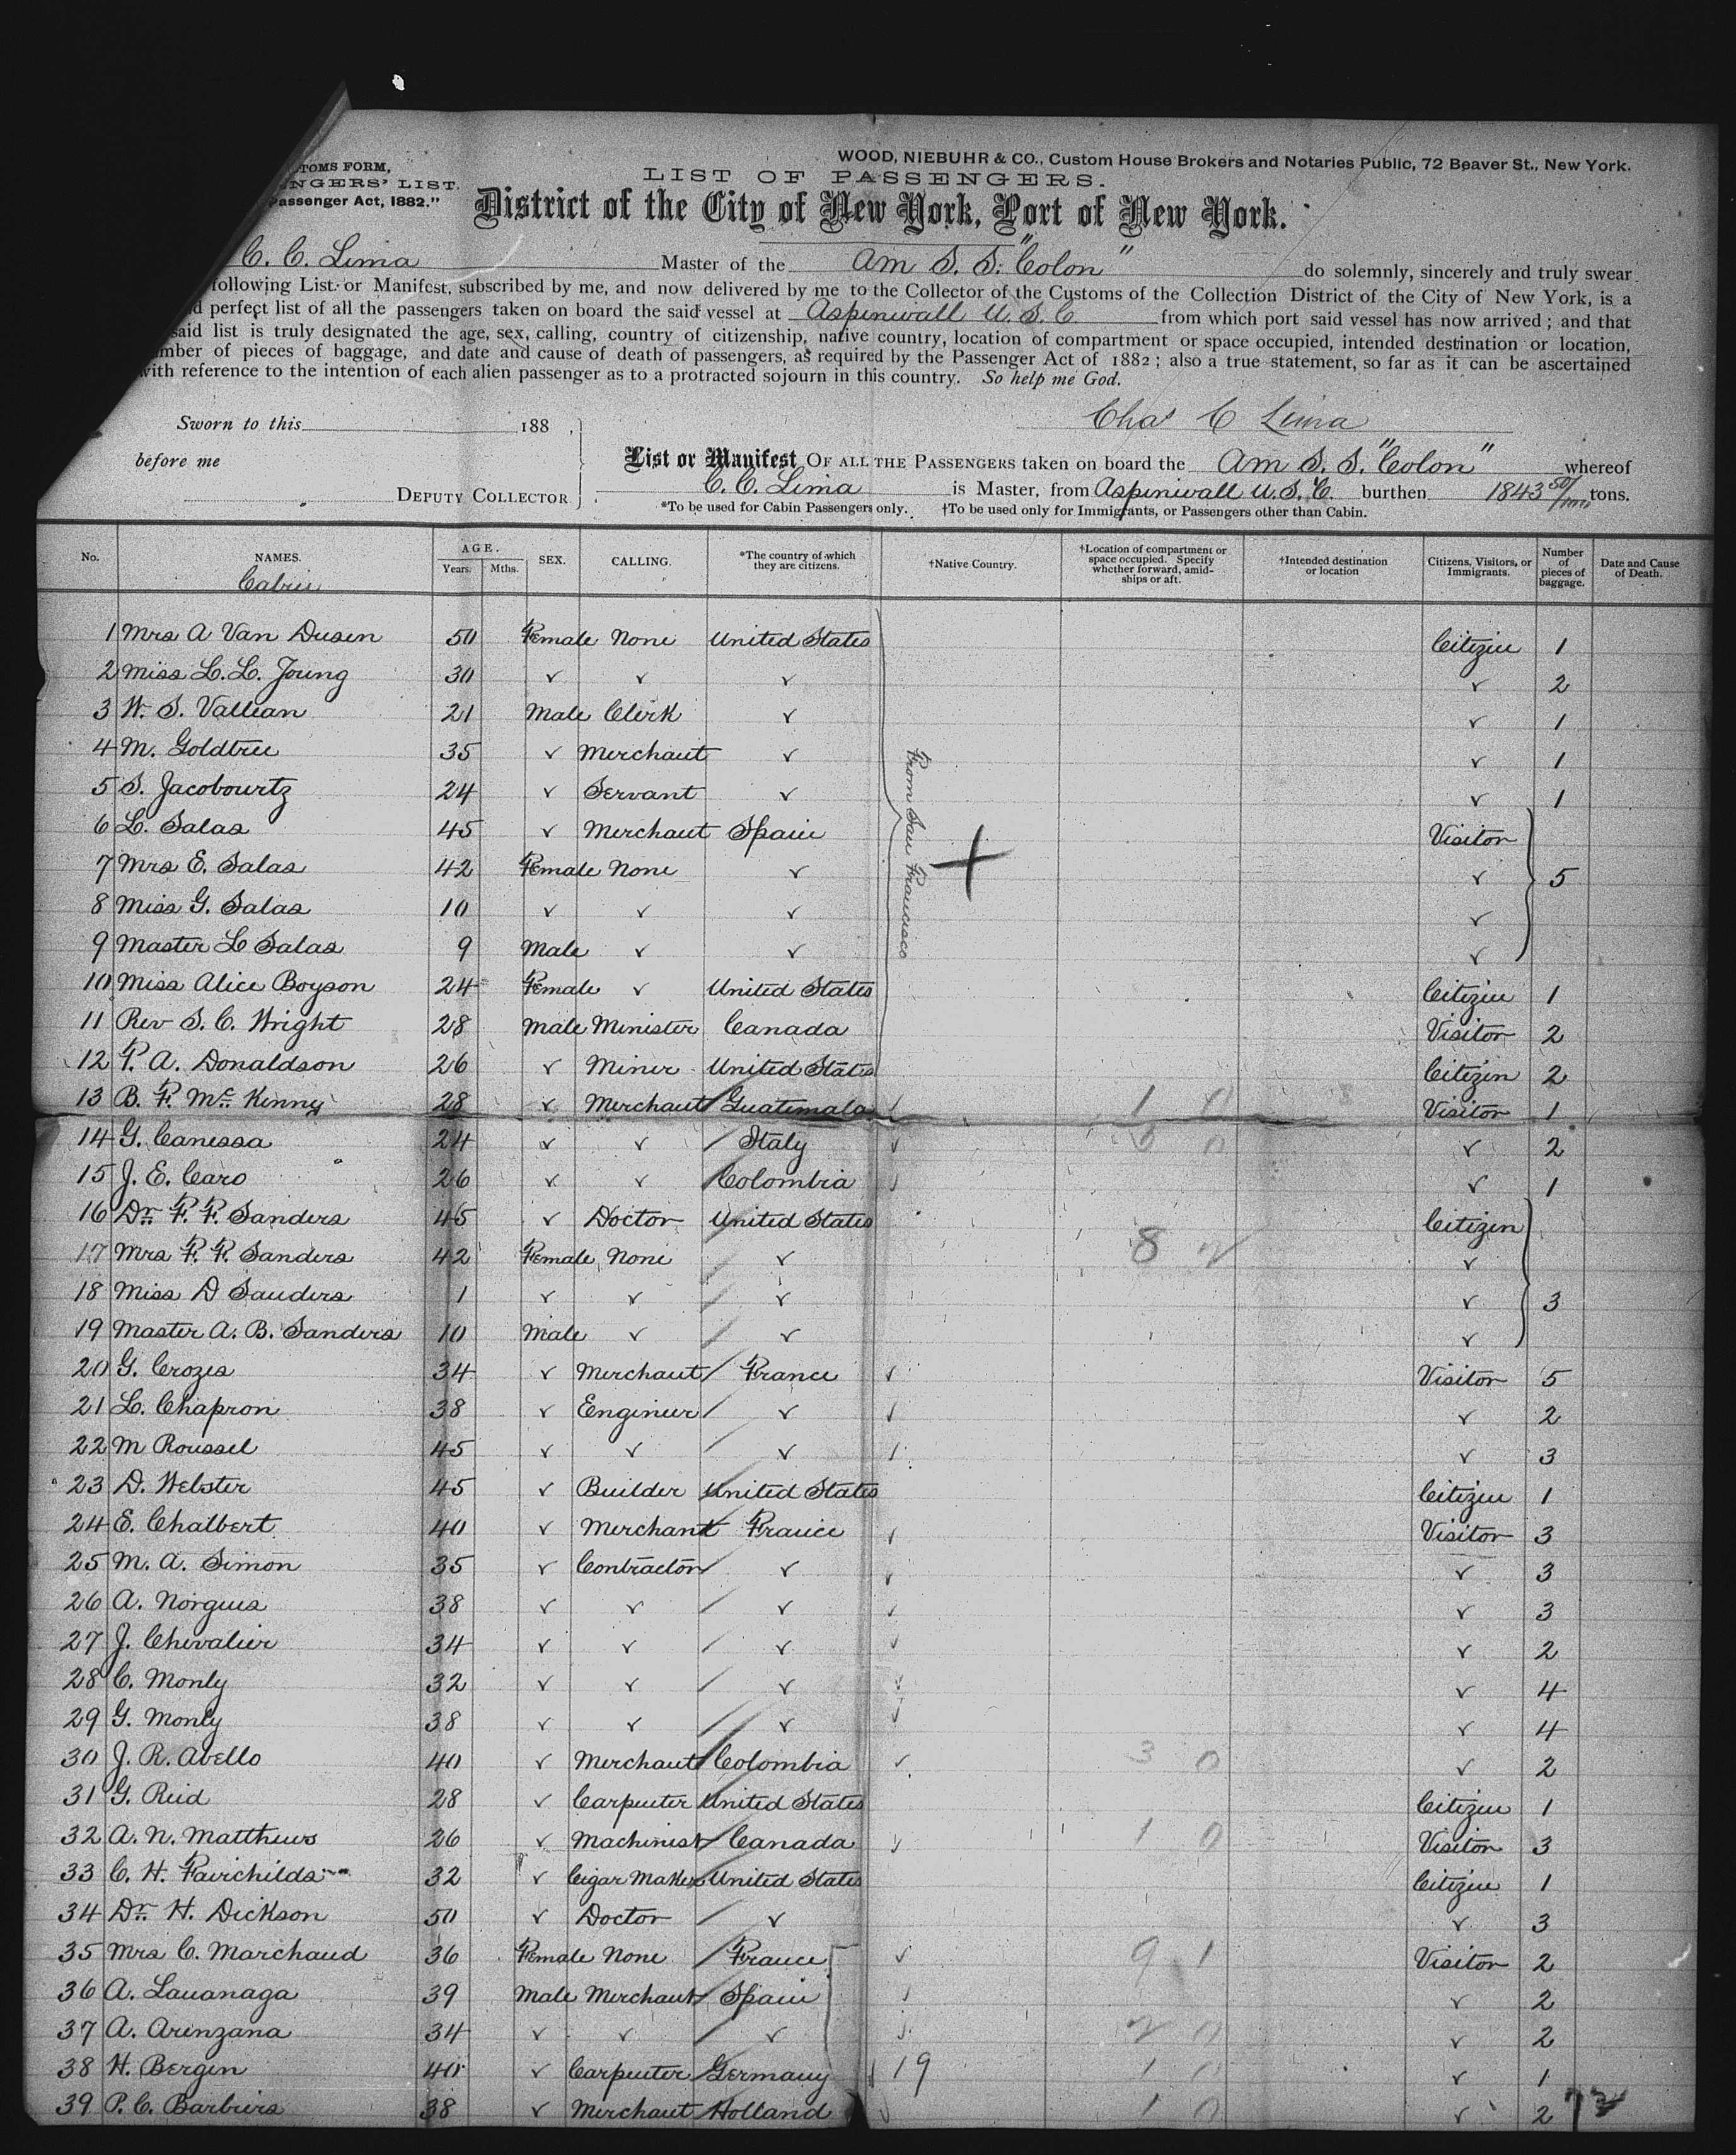 WOOD, NIEBUHR & CO., Custom House Brokers and Notaries Public, 72 Beaver St., New York.
TOMS FORM,
NGERS' LIST.
Passenger Act, 1882."
LIST OF PASSENGERS.
District of the City of New York, Port of New York.
C. C. Lima Master of the Am S. S. "Colon" do solemnly, sincerely and truly swear
following List or Manifest, subscribed by me, and now delivered by me to the Collector of the Customs of the Collection District of the City of New York, is a
d perfect list of all the passengers taken on board the said vessel at Aspinwall U. S. C. from which port said vessel has now arrived; and that
said list is truly designated the age, sex, calling, country of citizenship, native country, location of compartment or space occupied, intended destination or location,
mber of pieces of baggage, and date and cause of death of passengers, as required by the Passenger Act of 1882; also a true statement, so far as it can be ascertained
with reference to the intention of each alien passenger as to a protracted sojourn in this country. So help me God.
Chas C Lima
Sworn to this 188 ,
before me
DEPUTY COLLECTOR
List or Manifest OF ALL THE PASSENGERS taken on board the Am S. S. "Colon" whereof
C. C. Lima is Master, from Aspinwall U. S. C. burthen 1843 50/100 tons.
*To be used for Cabin Passengers only. †To be used only for Immigrants, or Passengers other than Cabin.
No. NAMES. AGE. Years. Mths. SEX. CALLING. *The country of which they are citizens. †Native Country. †Location of compartment or space occupied. Specify whether forward, amidships or aft. †Intended destination or location Citizens, Visitors, or Immigrants. Number of pieces of baggage. Date and Cause of Death.
Cabin
1 Mrs A Van Dusen 50 Female None United States Citizen 1
2 Miss L. L. Young 30 ✓ ✓ ✓ ✓ 2
3 W. S. Vallean 21 Male Clerk ✓ ✓ 1
4 M. Goldtree 35 ✓ Merchant ✓ ✓ 1
5 S. Jacobowtz 24 ✓ Servant ✓ ✓ 1
6 L. Salas 45 ✓ Merchant Spain Visitor
7 Mrs E. Salas 42 Female None ✓ ✓ 5
8 Miss G. Salas 10 ✓ ✓ ✓ ✓
9 Master L Salas 9 Male ✓ ✓ ✓
From San Francisco
10 Miss Alice Boyson 24 Female ✓ United States Citizen 1
11 Rev S. C. Wright 28 Male Minister Canada Visitor 2
12 F. A. Donaldson 26 ✓ Miner United States Citizen 2
13 B. F. Mc Kenny 28 ✓ Merchant Guatemala 1 0 Visitor 1
14 G. Canessa 24 ✓ ✓ Italy ✓ 2
15 J. E. Caro 26 ✓ ✓ Colombia ✓ 1
16 Dr. F. F. Sanders 45 ✓ Doctor United States Citizen
17 Mrs F. F. Sanders 42 Female None ✓ 8 2 ✓
18 Miss D Sanders 1 ✓ ✓ ✓ ✓ 3
19 Master A. B. Sanders 10 Male ✓ ✓ ✓
20 G. Crozes 34 ✓ Merchant France Visitor 5
21 L. Chapron 38 ✓ Engineer ✓ ✓ 2
22 M Roussel 45 ✓ ✓ ✓ ✓ 3
23 D. Webster 45 ✓ Builder United States Citizen 1
24 E. Chalbert 40 ✓ Merchant France Visitor 3
25 M. A. Simon 35 ✓ Contractor ✓ ✓ 3
26 A. Norgues 38 ✓ ✓ ✓ ✓ 3
27 J. Chevalier 34 ✓ ✓ ✓ ✓ 2
28 C. Monly 32 ✓ ✓ ✓ ✓ 4
29 G. Monly 38 ✓ ✓ ✓ ✓ 4
30 J. R. Abello 40 ✓ Merchant Colombia 3 0 ✓ 2
31 G. Reid 28 ✓ Carpenter United States Citizen 1
32 A. N. Matthews 26 ✓ Machinist Canada 1 0 Visitor 3
33 C. H. Fairchilds 32 ✓ Cigar Maker United States Citizen 1
34 Dr. H. Dickson 50 ✓ Doctor ✓ ✓ 3
35 Mrs C. Marchaud 36 Female None France 9 1 Visitor 2
36 A. Lauanaga 39 Male Merchant Spain ✓ 2
37 A. Arenzana 34 ✓ ✓ ✓ 2 0 ✓ 2
38 H. Bergen 40 ✓ Carpenter Germany 19 1 0 ✓ 1
39 P. C. Barbiers 38 ✓ Merchant Holland 1 0 ✓ 2